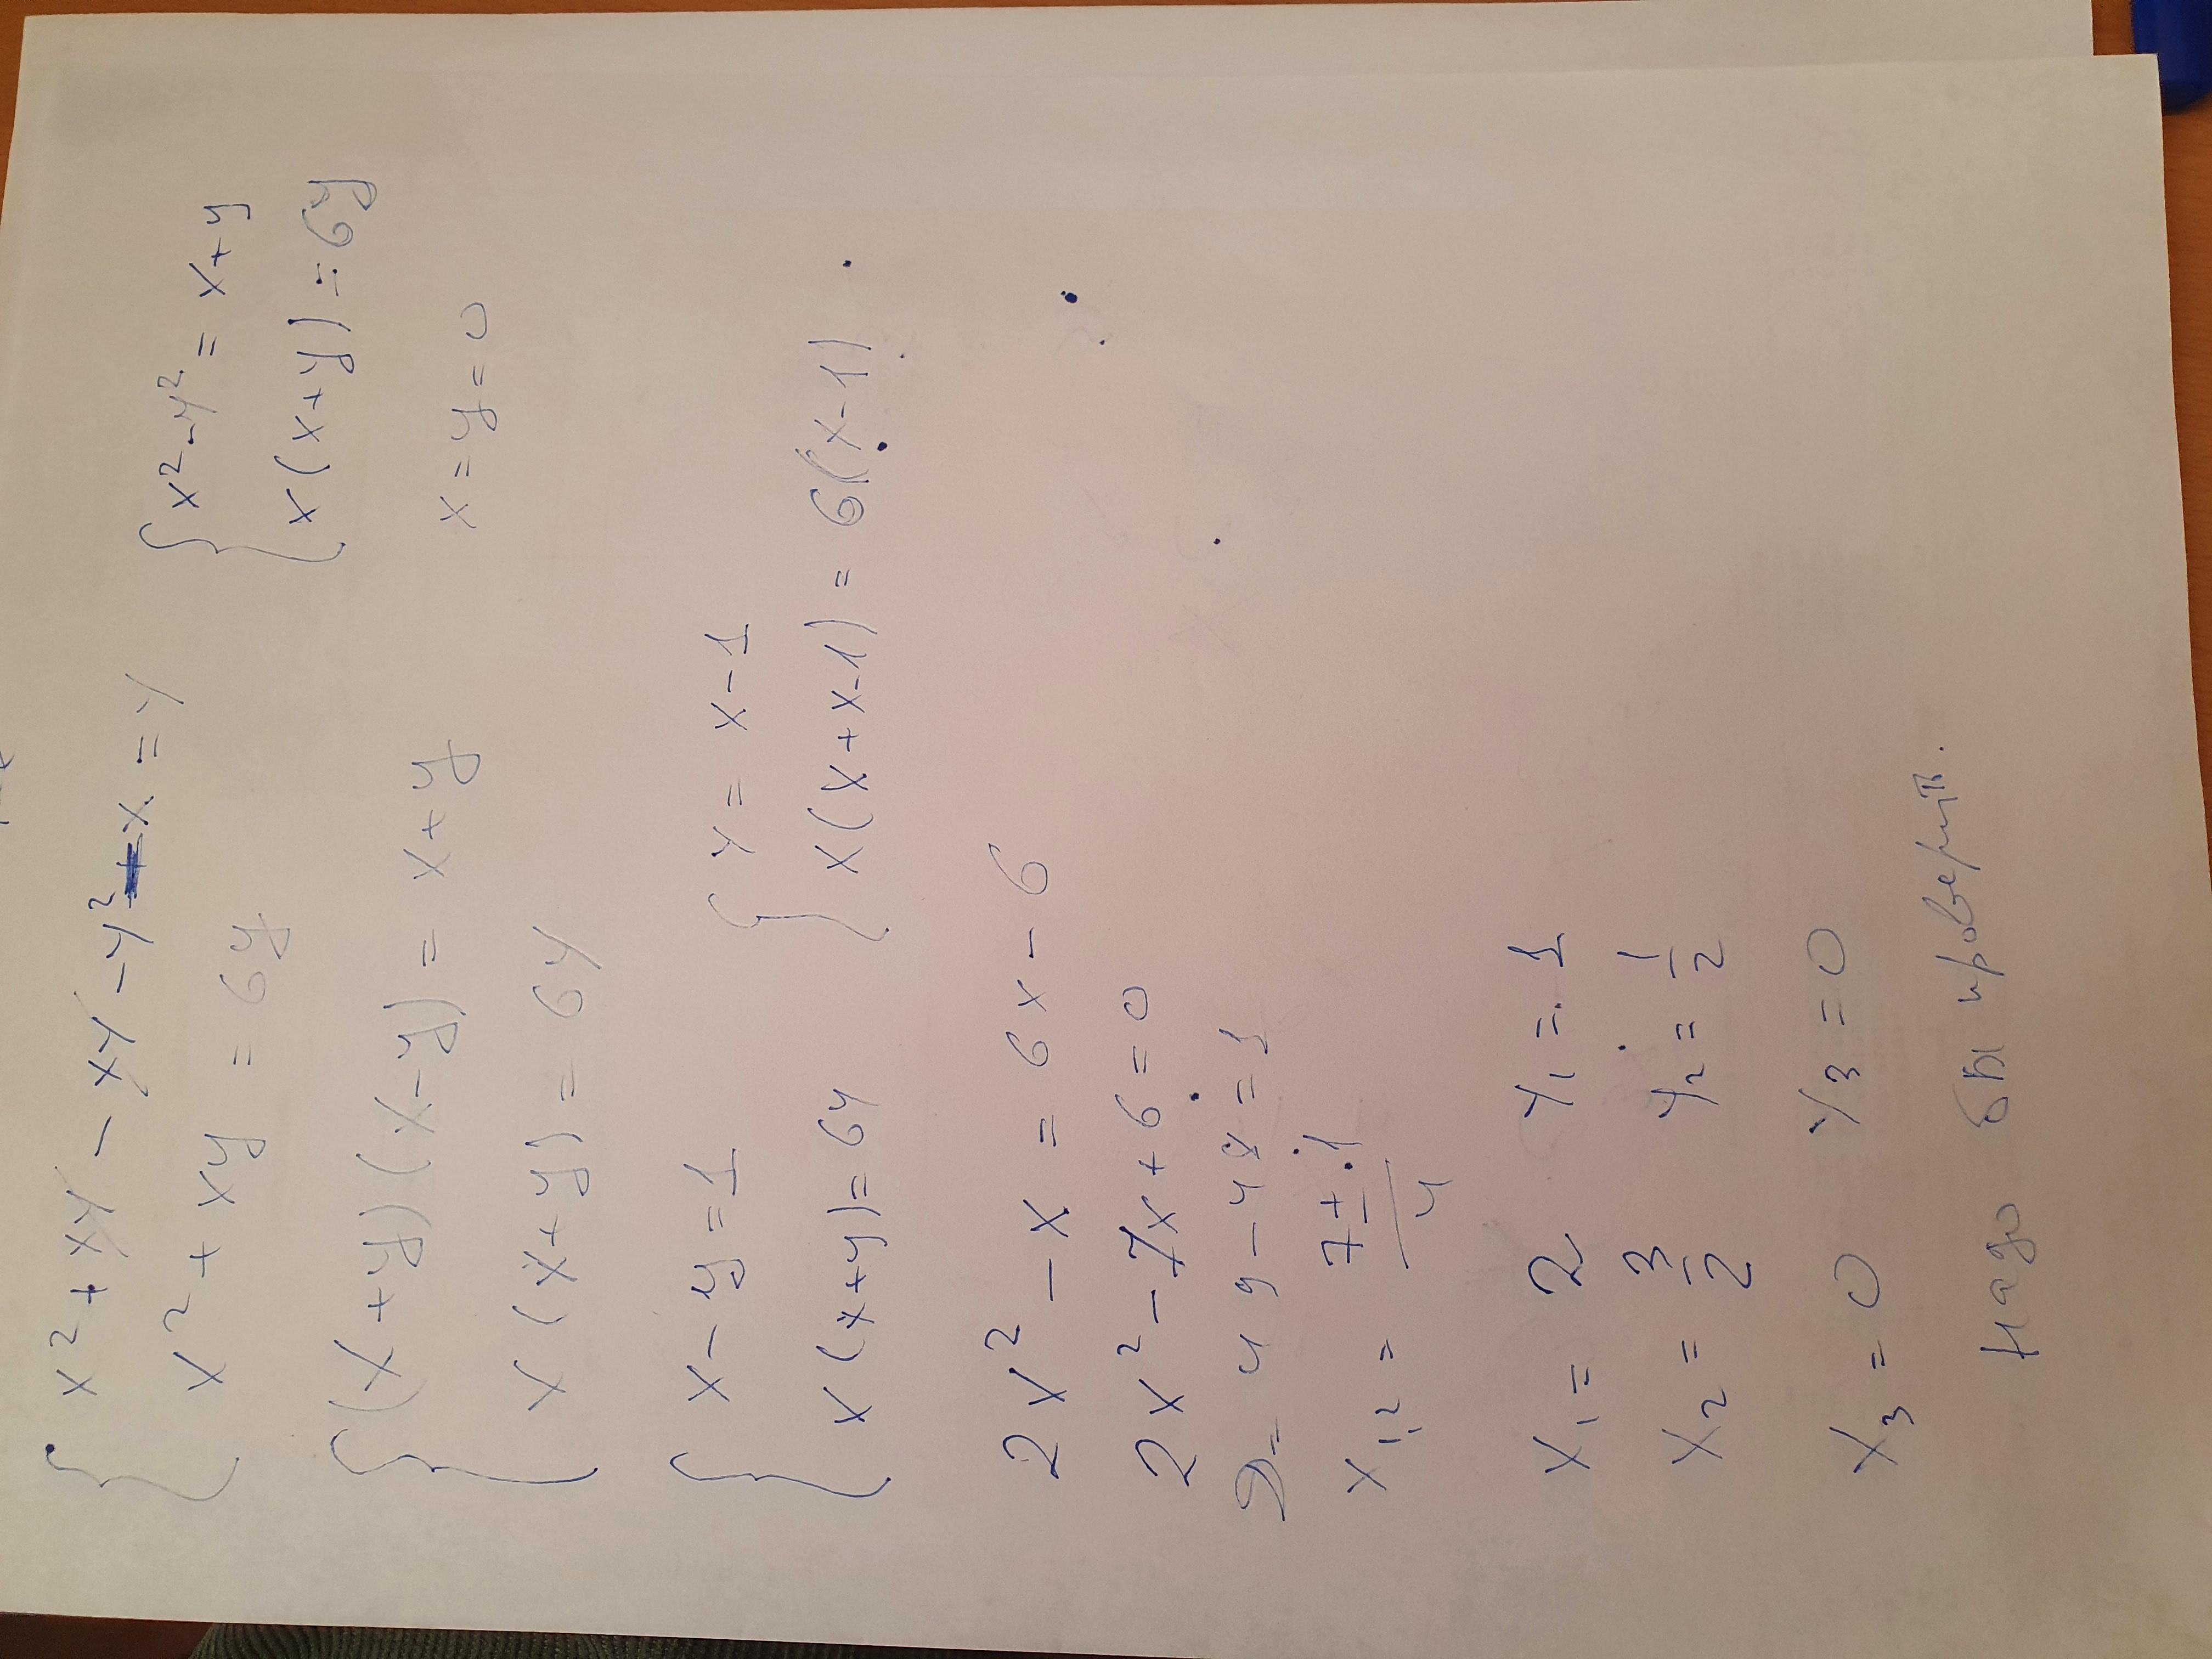 x² + xy - xy - y² - x = y
x² + xy = 6y
x² - y² = x + y
x(x+y) = 6y
x = y = 0
(x+y)(x-y) = x+y
x(x+y) = 6y
x - y = 1
x(x+y) = 6y
y = x - 1
x(x+x-1) = 6(x-1)
2x² - x = 6x - 6
2x² - 7x + 6 = 0
D = 49 - 48 = 1
x₁,₂ = (7 ± 1)/4
x₁ = 2 y₁ = 1
x₂ = 3/2 y₂ = 1/2
x₃ = 0 y₃ = 0
Надо бы проверить.